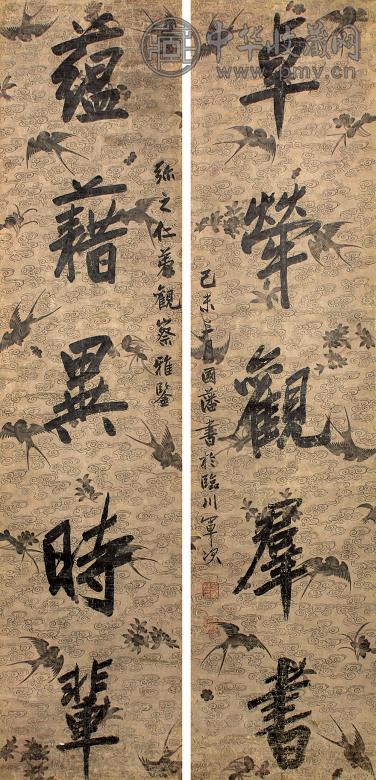 中华收藏网
www.pmv.cn
卓犖觀羣書
己未月國藩書於臨川軍次
弥之仁弟觀察雅鑒
蘊藉異時輩